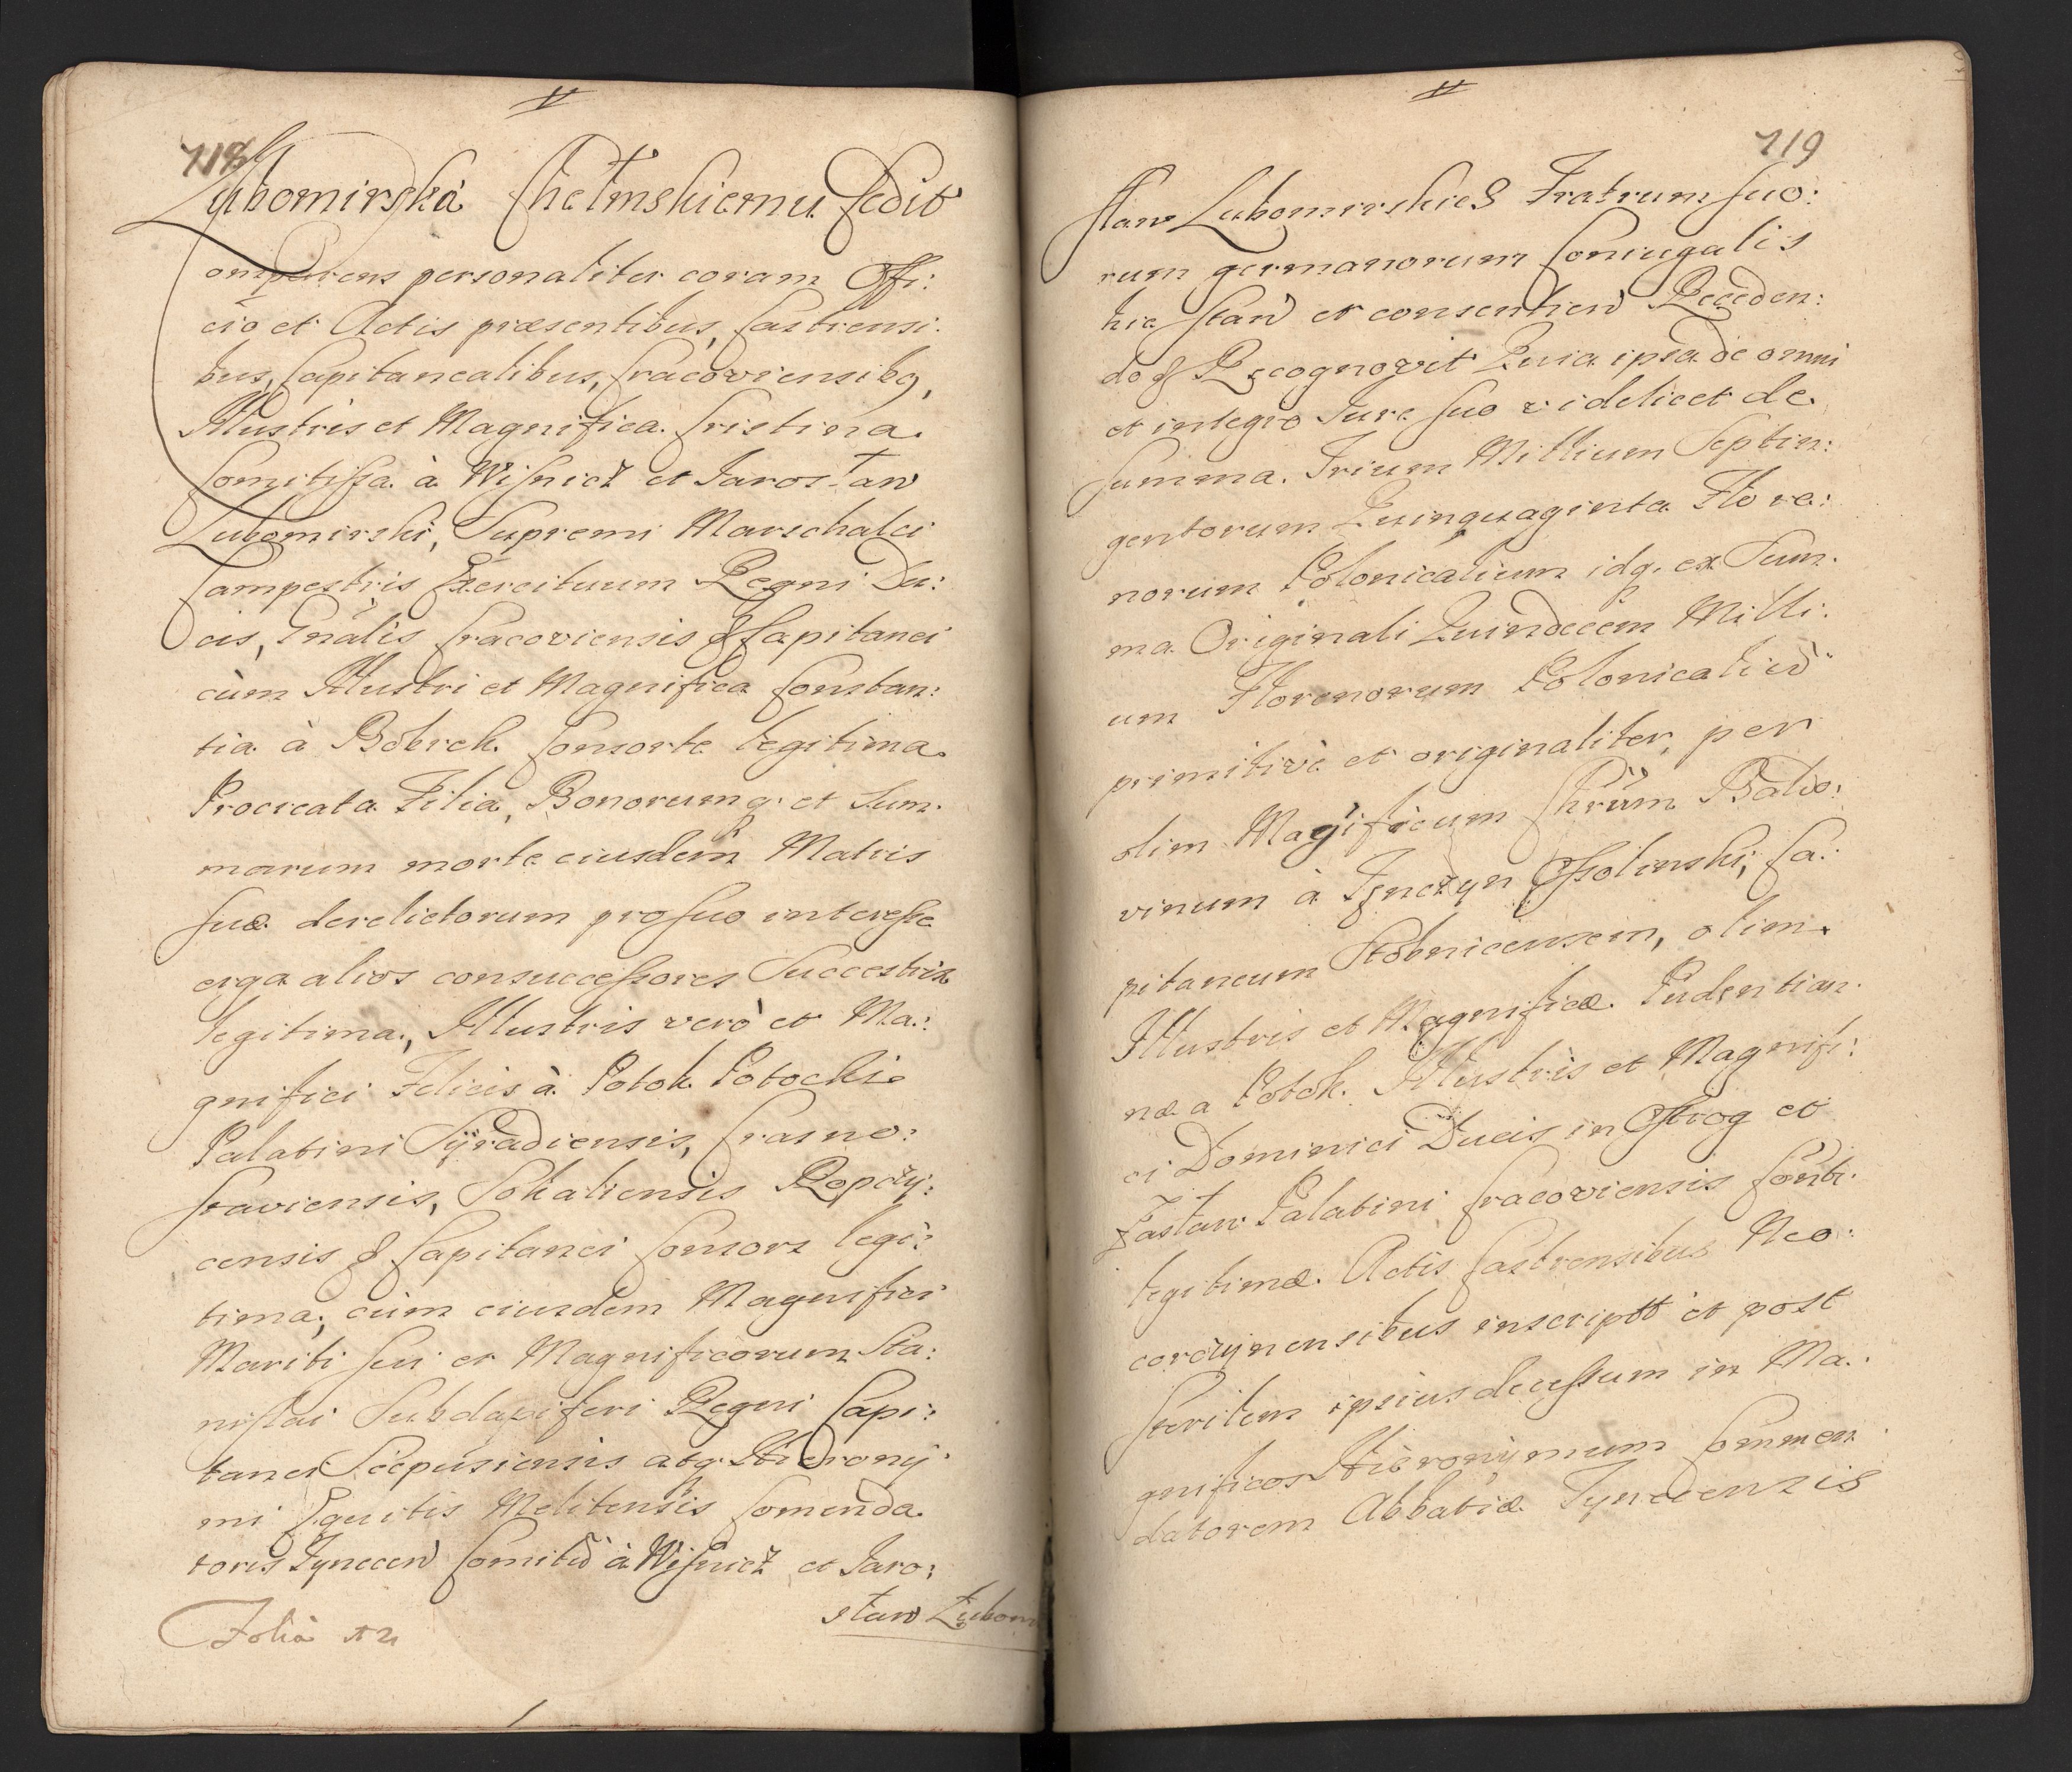 718
Lubomirska Chełmskiemu Cedit
Comparens personaliter coram Offi:
cio et Actis præsentibus, Castrensi:
bus, Capitanealibus, Cracoviensibq,
Illustris et Magnifica Cristina
Comitissa à Wisnicz et Jarosław
Lubomirski, Supremi Marschalci
Campestris Exercituum Regni Du:
cis, Gnâlis Cracoviensis & Capitanei
cùm Illustri et Magnifica Constan:
tia à Bobrek Consorte legitima
Procreata Filia, Bonorumq. et Sum:
marum morte eiusdem Matris
suæ derelictorum pro suo interesse
erga alios consuccessores Succestrix
legitima, Illustris verò et Ma:
gnifici Felicis à Potok Potocki
Palatini Syradiensis, Crasno:
staviensis, Sokaliensis Ropczy:
censis & Capitanei Consors legi:
tima, cùm eiusdem Magnifici
Mariti sui et Magnificorum Sta:
nislai Subdapiferi Regni Capi:
tanei Scepusiensis atq. Hierony:
mi Equitis Melitensis Comenda
toris Tynecen Comitũ à Wisnicz et Jaro:
sław Lubom
Folia
719
sław Lubomirskich Fratrum suo:
rum germanorum Coniugalis
hic stan et consentien Receden:
do & Recognovit Quia ipsa de omni
et integro Jure suo videlicet de
Summa Trium Millium Septin:
gentorum Quinquaginta Flore:
norum Polonicalium idq. ex Sum:
ma Originali Quindecem Milli:
um Florenorum Polonicaliũ
primitivè et originaliter, per
olim Magificum Chrũm Baldo:
vinum à Tęnczyn Ossolinski, Ca:
pitaneum Stobnicensem, olim
Illustris et Magnificæ Pudentian:
næ a Potok Illustris et Magnifi:
ci Dominici Ducis in Ostrog et
Zasław Palatini Cracoviensis Conti:
legitimæ Actis Castrensibus Neo:
corczynensibus inscriptt et post
sterilem ipsius decessum in Ma:
gnificos Hieronymum Commen
datorem Abbatiæ Tynecensis